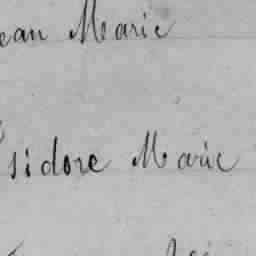 ean Marie
Isidore Marie